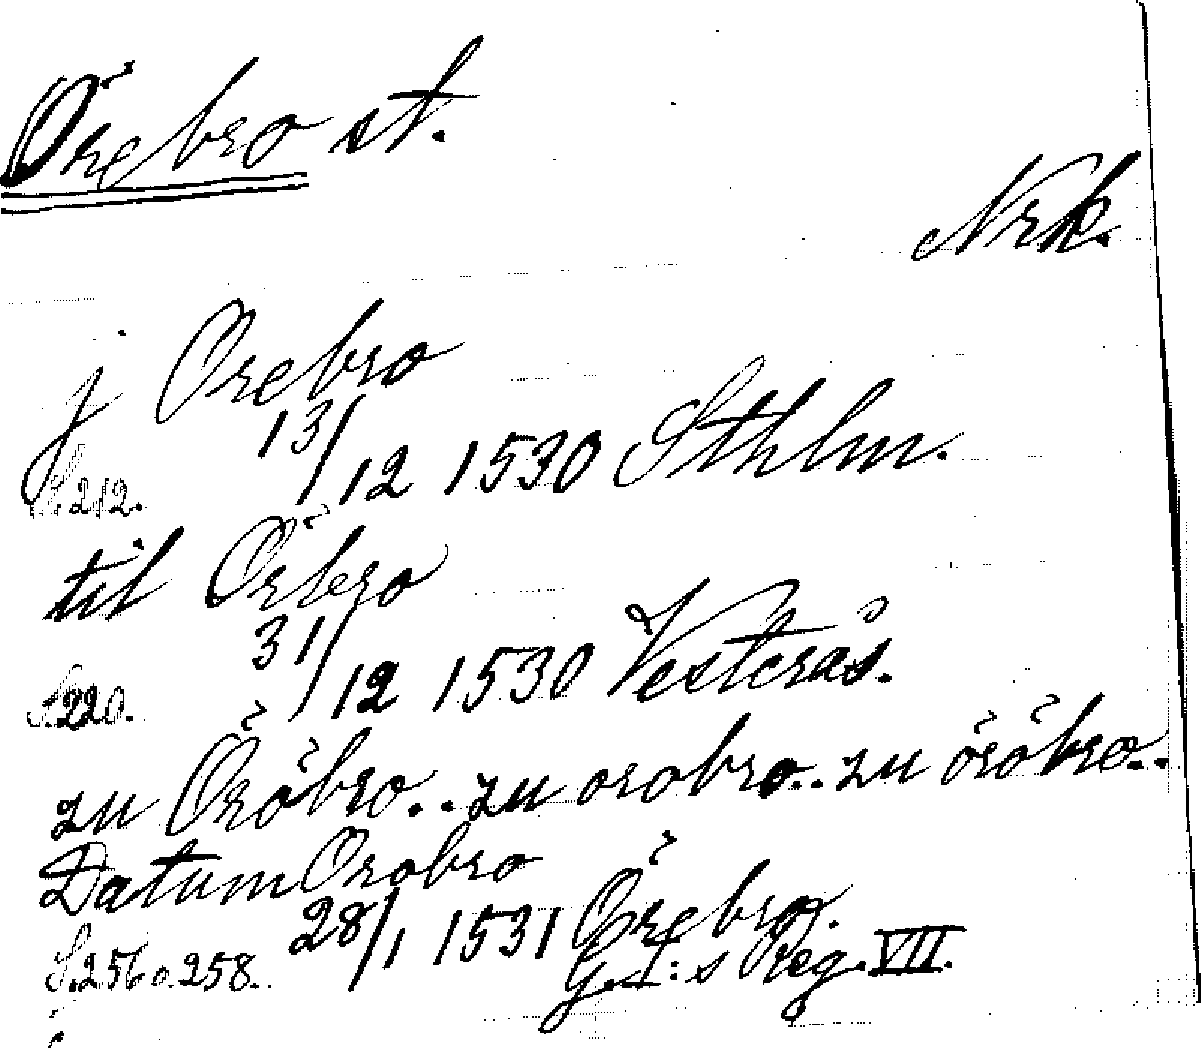 Örebro st.
Nrk.
j Orebro
13/12 1530 Sthlm.
S. 212.
til Örbro
31/12 1530 Vesterås.
S. 220.
zu Öröbro.. zu orobro.. zu öröbro..
Datum Orobro
28/1 1531 Örebro.
S. 256 o. 258.
G. I:s Reg. VII.